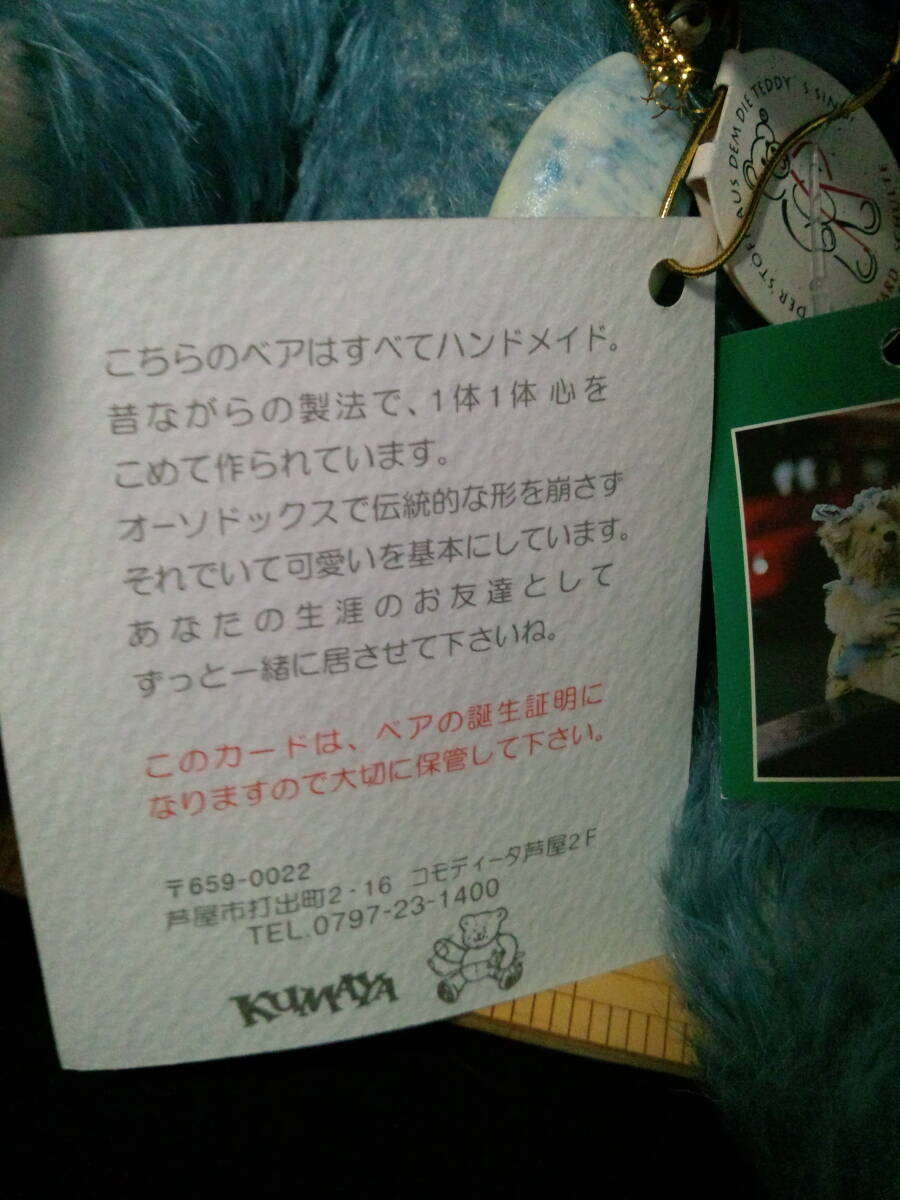 こちらのベアはすべてハンドメイド。
昔ながらの製法で、1体1体 心を
こめて作られています。
オーソドックスで伝統的な形を崩さず
それでいて可愛いを基本にしています。
あなたの生涯のお友達として
ずっと一緒に居させて下さいね。
このカードは、ベアの誕生証明に
なりますので大切に保管して下さい。
〒659-0022
芦屋市打出町2-16 コモディータ芦屋2F
TEL.0797-23-1400
KUMAYA
DER STOFF AUS DEM DIE TEDDY'S SIND